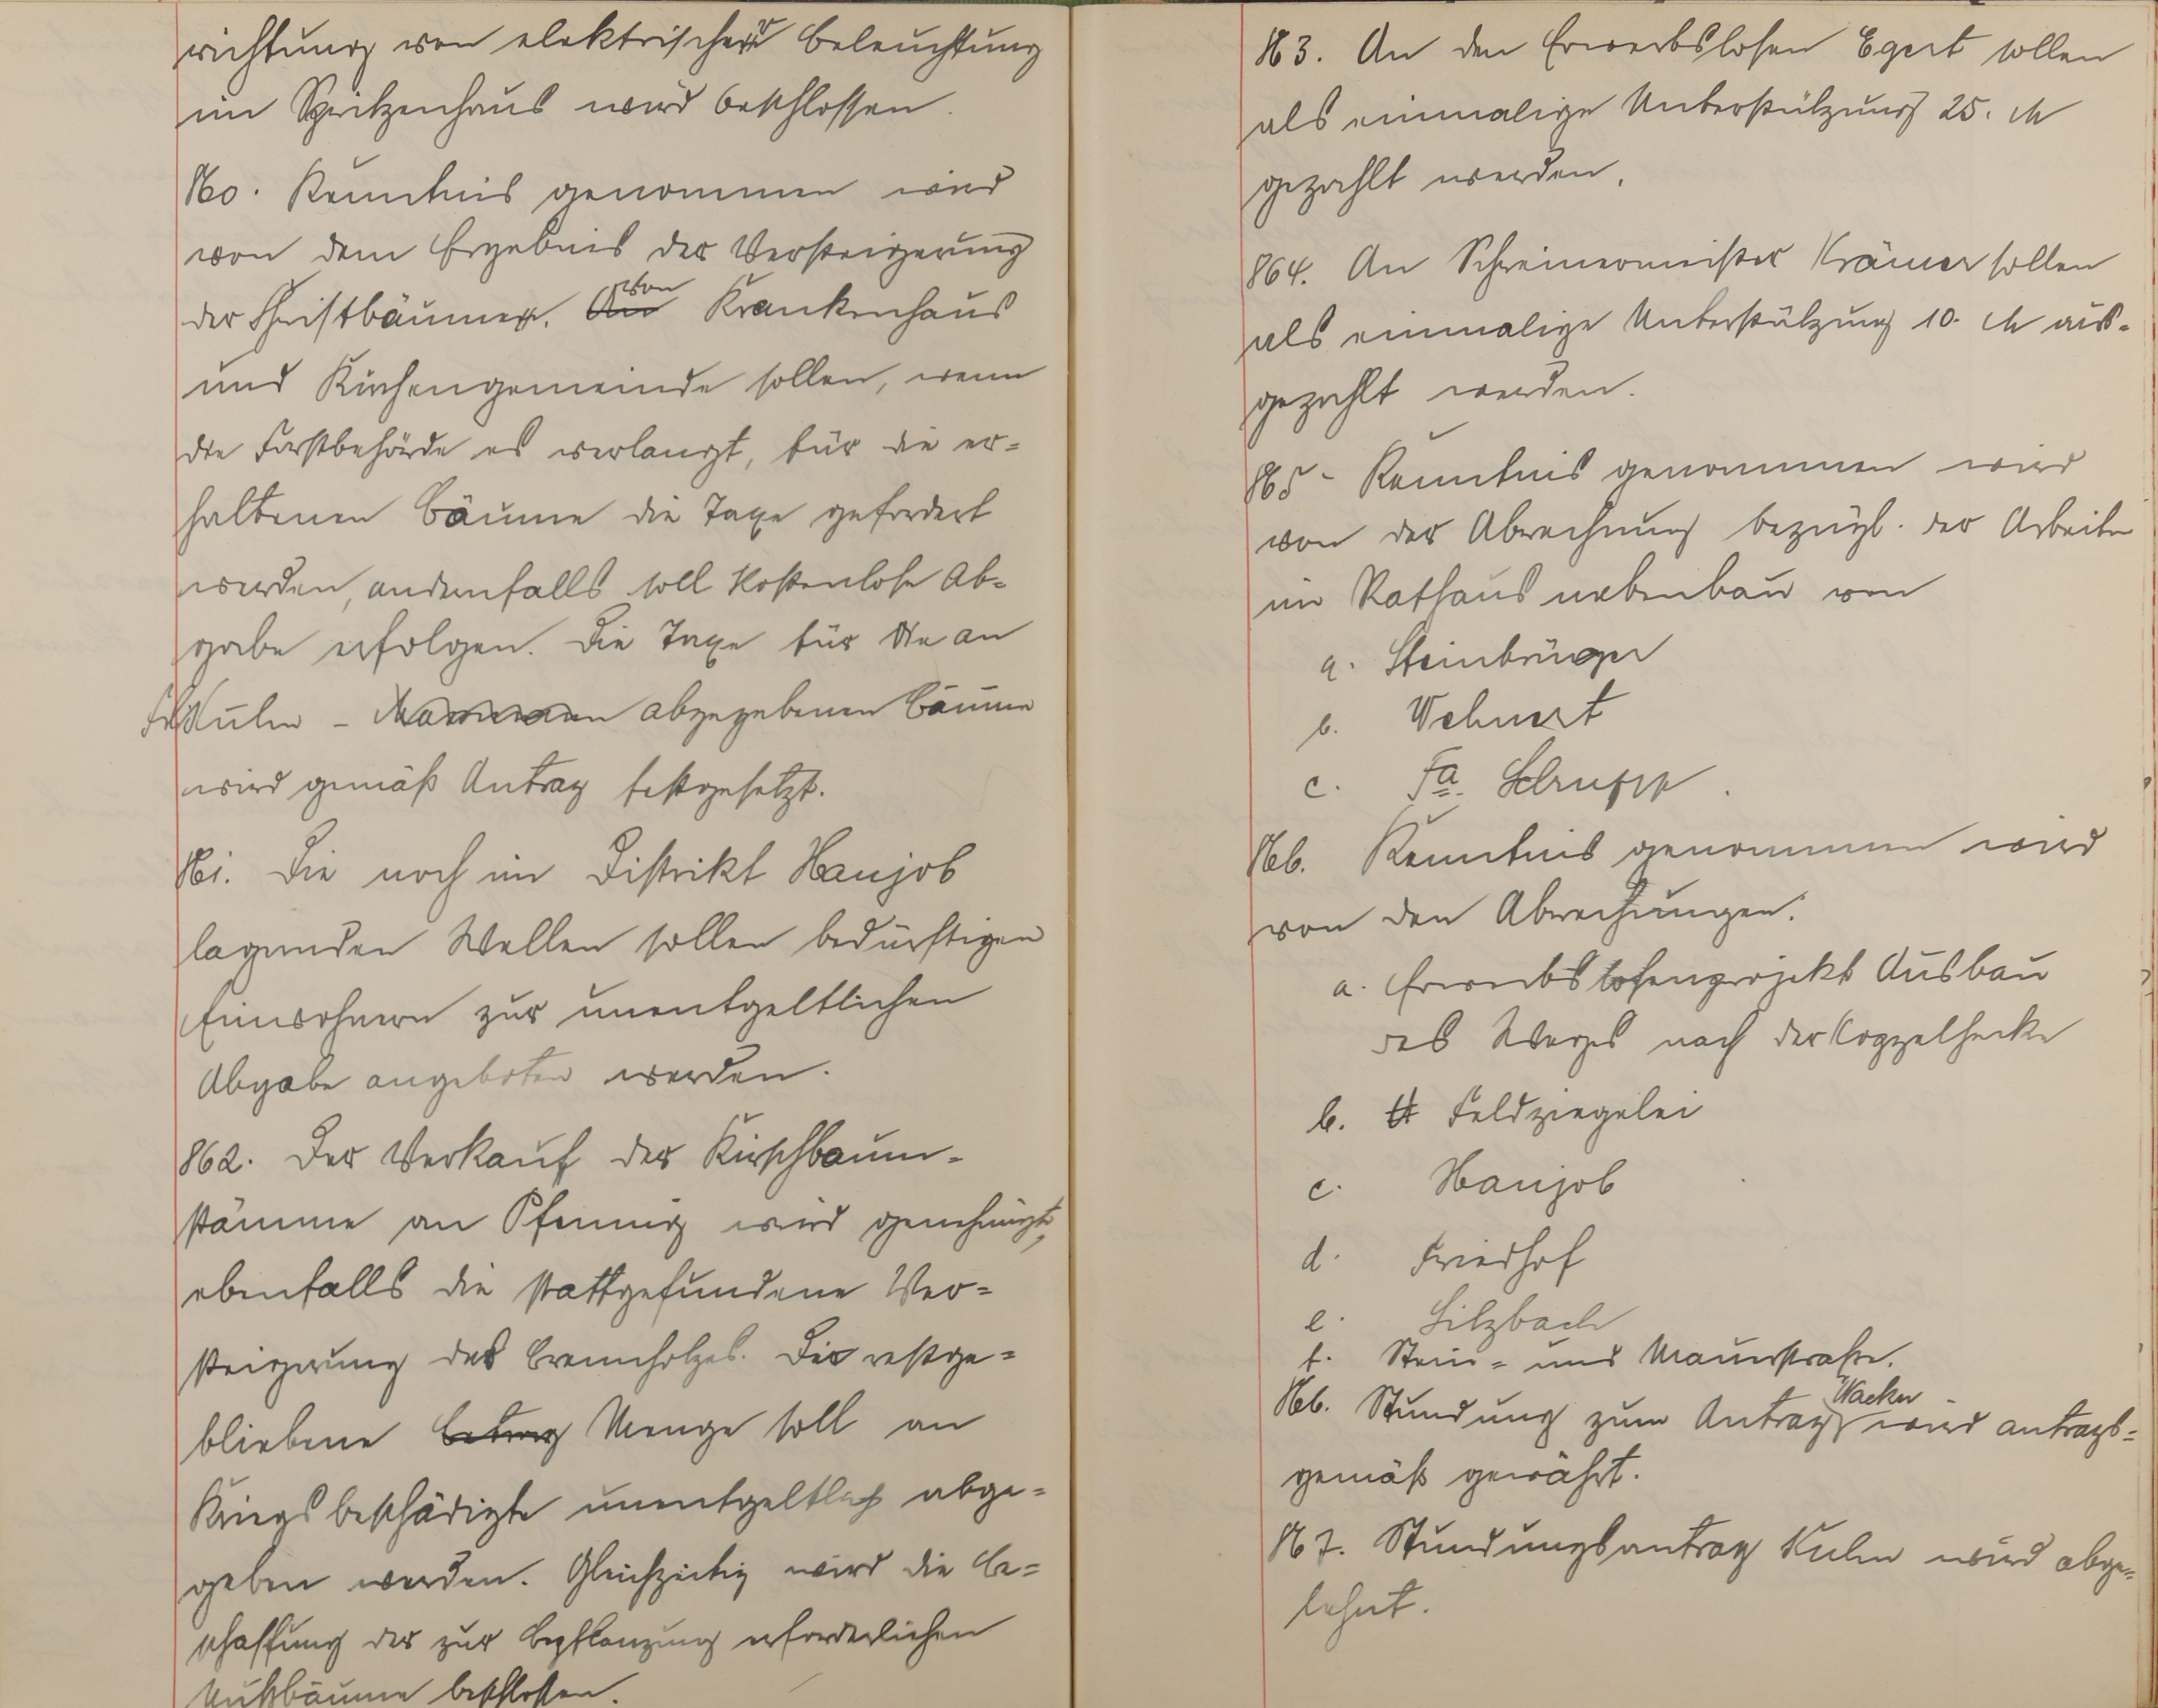 richtung von elektrischer Beleuchtung
im Spritzenhaus wird beschlossen.
860. Kenntnis genommen wird
von dem Ergebnis der Versteigerung
der Christbäume. von Krankenhaus
und Kirchengemeinde sollen, wenn
die Forstbehörde es verlangt, für die er-
haltenen Bäume die Taxe gefordert
werden, andernfalls soll kostenlose Ab-
gabe erfolgen. Die Taxe für die an
Kuhn - abgegebenen Bäume
wird gemäß Antrag festgesetzt.
861. Die noch im Distrikt Hanjob
lagernden Wellen sollen bedürftigen
Einwohnern zur unentgeltlichen
Abgabe angeboten werden.
862. Der Verkauf der Kirschbaum-
stämme an Pfennig wird genehmigt,
ebenfalls die stattgefundene Ver-
steigerung des Brennholzes. Die restge-
bliebene Menge soll an
Kriegsbeschädigte unentgeltlich abge-
geben werden. Gleichzeitig wird die Be-
schaffung der zur Bepflanzung erforderlichen
Nußbäume beschlossen.
863. An den Erwerbslosen Egert sollen
als einmalige Unterstützung 25. M
gezahlt werden.
864. An Schreinermeister Krämer sollen
als einmalige Unterstützung 10. M aus-
gezahlt werden.
865 - Kenntnis genommen wird
von der Abrechnung bezügl. der Arbeiten
im Rathausnebenbau von
a. Steinbrüger
b. Wehnert
c. Fa. Schrupp.
866. Kenntnis genommen wird
von den Abrechnungen:
a. Erwerbslosenprojekt Ausbau
des Weges nach der Koppelhecke
b. Feldziegelei
c. Hanjob
d. Friedhof
e. Silzbach
f. Stein- und Mauerstraße.
866. Stundung zum Antrag Wacker wird antrags-
gemäß gewährt.
867. Stundungsantrag Kuhn wird abge-
lehnt.